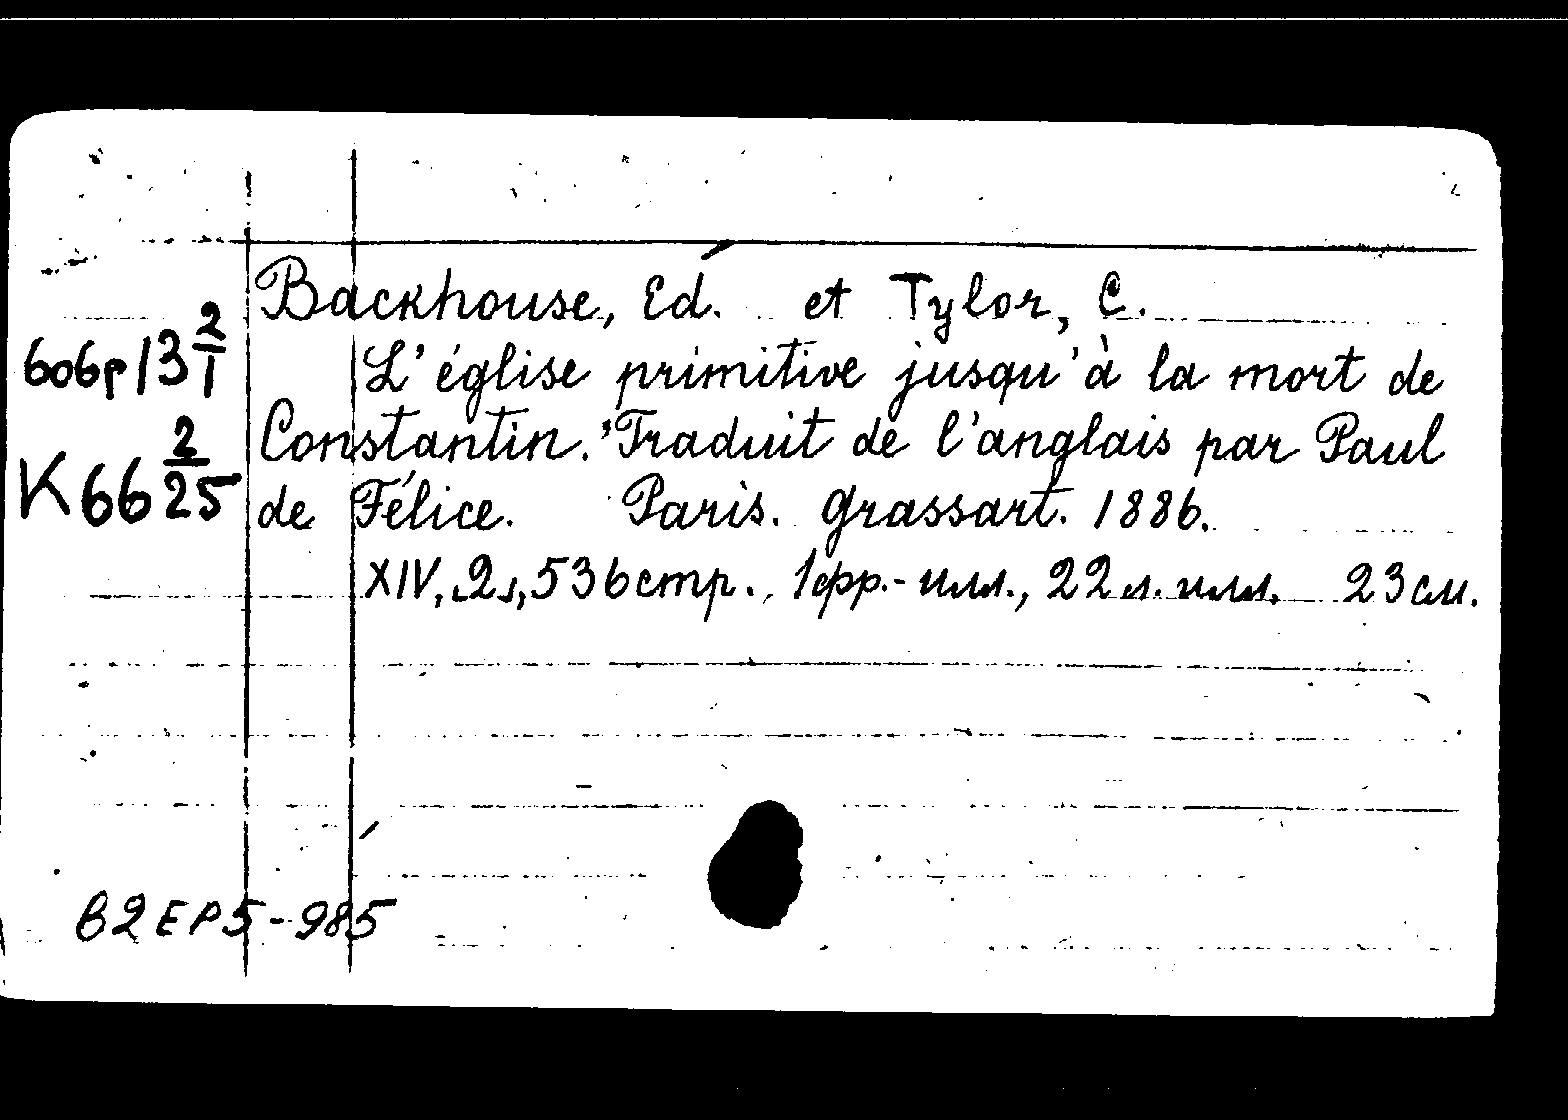 Backhouse, Ed. et Tylor, C.
606p/13 2/I
L'église primitive jusqu'à la mort de
Constantin. Traduit de l'anglais par Paul
K66 2/25
de Félice. Paris. Grassart. 1886.
XIV, [2], 536 стр., 1 фр.-илл., 22 л. илл. 23 см.
B2EP5-985